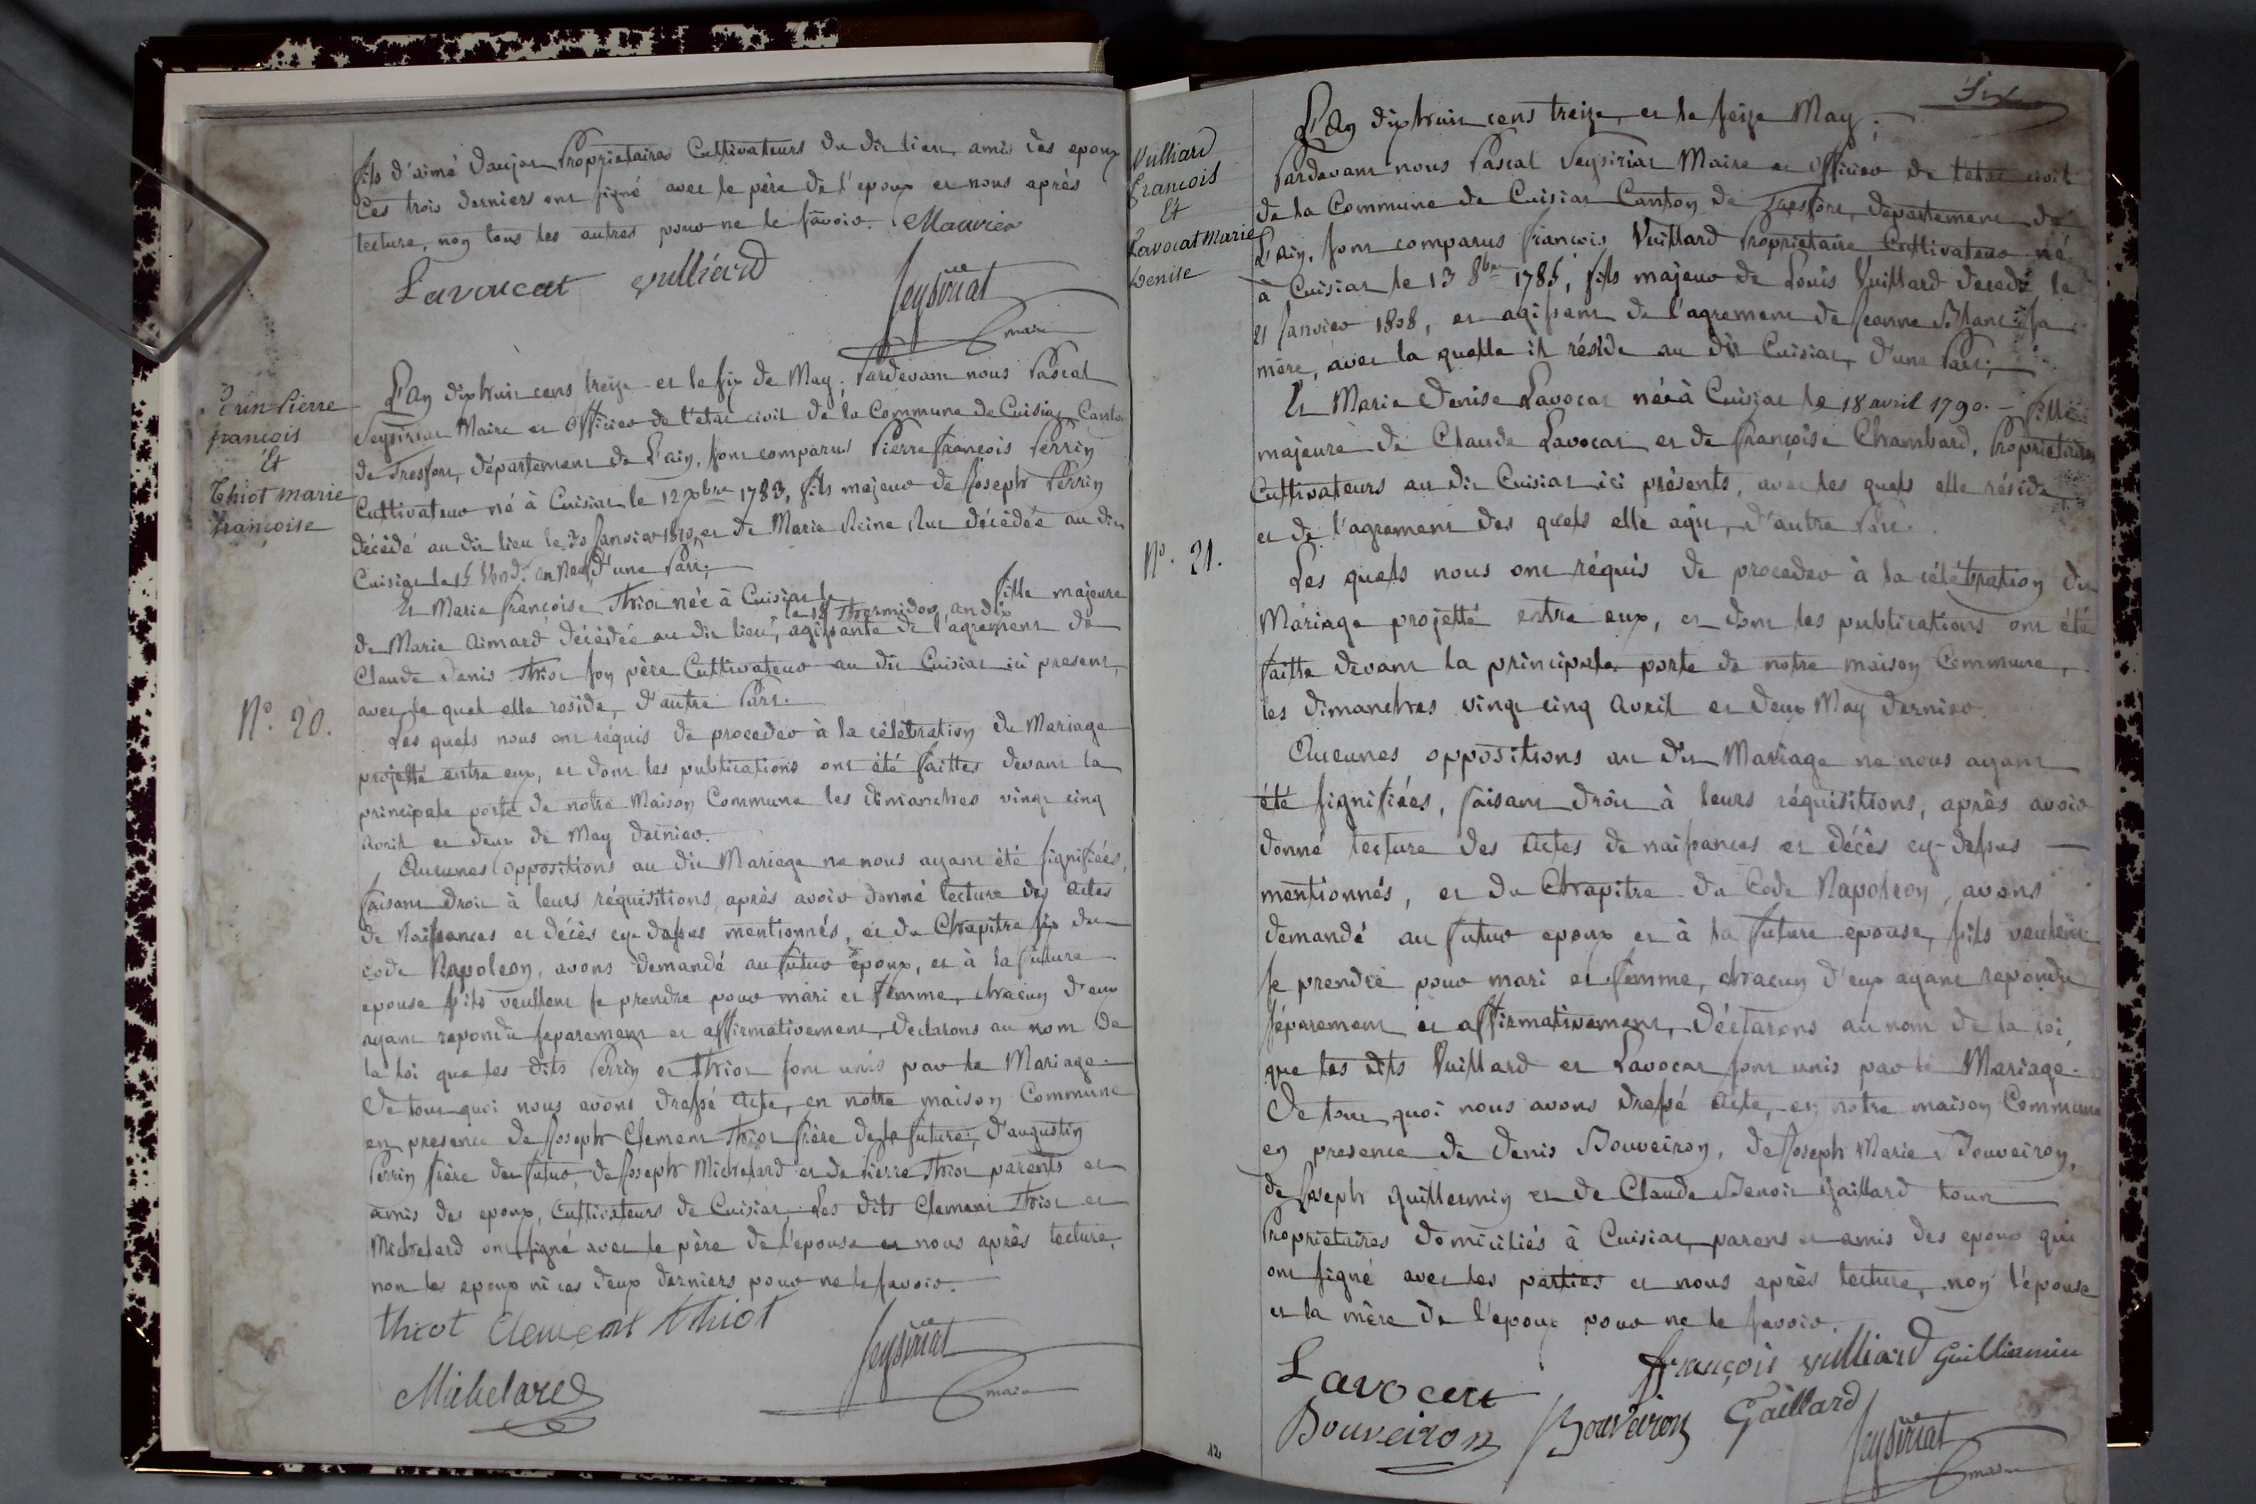 fils d'aimé Daujat Propriétaires Cultivateurs du dit lieu amis des epoux
Ces trois derniers ont signé avec le père de l'epoux et nous après
lecture, non tous les autres pour ne le savoir. Mauvier
Lavoucat vulliard Seysiriat
maire
Perin Pierre
francois
Et
Thiot marie
françoise
N.º 20.
L'an dix huit cens treize et le six de May, Pardevant nous Pascal
Seysiriat Maire et Officier de l'etat civil de la Commune de Cuisiat Canton
de Tresfort, département de L'ain, sont comparus Pierre François Perrin
Cultivateur né à Cuisiat le 12 Xbre 1783, fils majeur de Joseph Perrin
décédé au dit lieu le 30 Janvier 1810, et de Marie Reine Luc décédée au dit
Cuisiat le 15 Vend.re an Neuf, d'une Part;
Et Marie françoise Thiot née à Cuisiat le fille majeure
le 18 Thermidor an dix
de Marie Aimard décédée au dit lieu, agissante de l'agrement de
Claude Denis Thiot son père Cultivateur au dit Cuisiat ici present,
avec le quel elle reside, d'autre Part.
Les quels nous ont requis de proceder à la célébration du Mariage
projetté entre eux, et dont les publications ont été faittes devant la
principale porte de notre Maison Commune les dimanches vingt cinq
Avril et deux de May dernier.
Aucunes oppositions au dit Mariage ne nous ayant été signifiées,
faisant droit à leurs réquisitions, après avoir donné lecture des Actes
de Naissances et décès cy-dessus mentionnés, et du Chapitre six du
code Napoleon, avons demandé au futur époux, et à la future
epouse s'ils veullent se prendre pour mari et femme, chacun d'eux
ayant repondu separement et affirmativement, declarons au nom de
la loi que les dits Perrin et Thiot sont unis par le Mariage.
De tout quoi nous avons dressé Acte, en notre maison Commune
en presence de Joseph Clement Thiot frère de la future, d'augustin
Perrin frère du futur, de Joseph Michelard et de Pierre Thiot parents et
amis des epoux, Cultivateurs de Cuisiat. Les dits Clement Thiot et
Michelard ont signé avec le père de l'epouse et nous après lecture,
non les epoux ni ces deux derniers pour ne le savoir.
thiot Clement thiot Seysiriat
Michelard maire
Six
Vulliard
François
Et
Lavocat Marie
Denise
N.º 21.
L'An dix huit cens treize et le seize May;
Pardevant nous Pascal Seysiriat Maire et Officier de l'etat civil
de la Commune de Cuisiat Canton de Tresfort, département de
L'Ain, sont comparus François Vuillard Propriétaire Cultivateur né
à Cuisiat le 13 8bre 1785, fils majeur de Louis Vuillard décédé le
21 Janvier 1808, et agissant de l'agrement de Jeanne Blanc sa
mère, avec la quelle il réside au dit Cuisiat, d'une Part;
Et Marie Denise Lavocat née à Cuisiat le 18 avril 1790. - fille
majeure de Claude Lavocat et de Françoise Chambard, Proprietaires
Cultivateurs au dit Cuisiat ici présents, avec les quels elle réside
et de l'agrement des quels elle agit, d'autre Part.
Les quels nous ont réquis de proceder à la célébration du
Mariage projetté entre eux, et dont les publications ont été
faitte devant la principale porte de notre maison Commune,
les dimanches vingt cinq Avril et deux May dernier.
Aucunes oppositions au dit Mariage ne nous ayant
été signifiées, faisant droit à leurs réquisitions, après avoir
donné lecture des Actes de naissances et décès cy-dessus
mentionnés, et du Chapitre du Code Napoleon, avons
demandé au futur epoux et à la future epouse, s'ils veulent
se prendre pour mari et femme, chacun d'eux ayant repondu
séparement et affirmativement, déclarons au nom de la loi
que les dits Vuillard et Lavocat sont unis par le Mariage.
De tout quoi nous avons dressé Acte, en notre maison Commune
en presence de Denis Bouveiron, de Joseph Marie Bouveiron,
de Joseph Guillermin et de Claude Benoit Gaillard tous
Propriétaires domiciliés à Cuisiat, parens et amis des epoux qui
ont signé avec les parties et nous après lecture, non l'épouse
et la mère de l'epoux pour ne le savoir.
Lavocat françois vulliard Guilliermin
Bouveiron Bouveiron Gaillard Seysiriat
maire
12